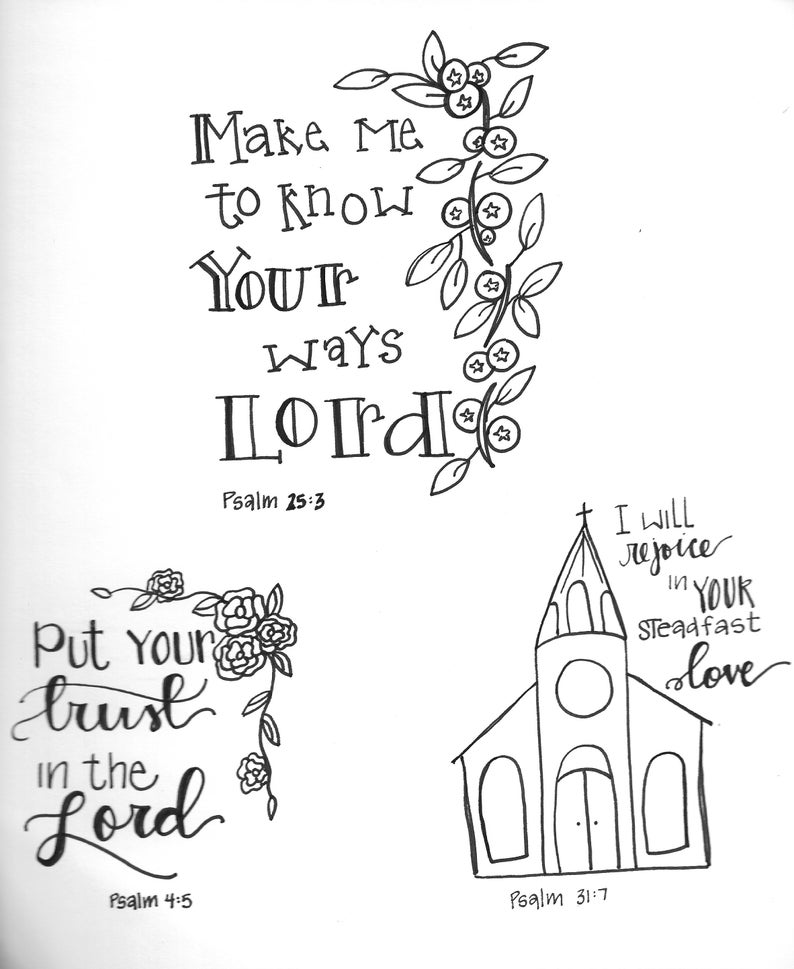 Make me
to know
Your
ways
Lord
Psalm 25:3
I will
rejoice
in YOUR
steadfast
love
Psalm 31:7
Put Your
trust
in the
Lord
Psalm 4:5